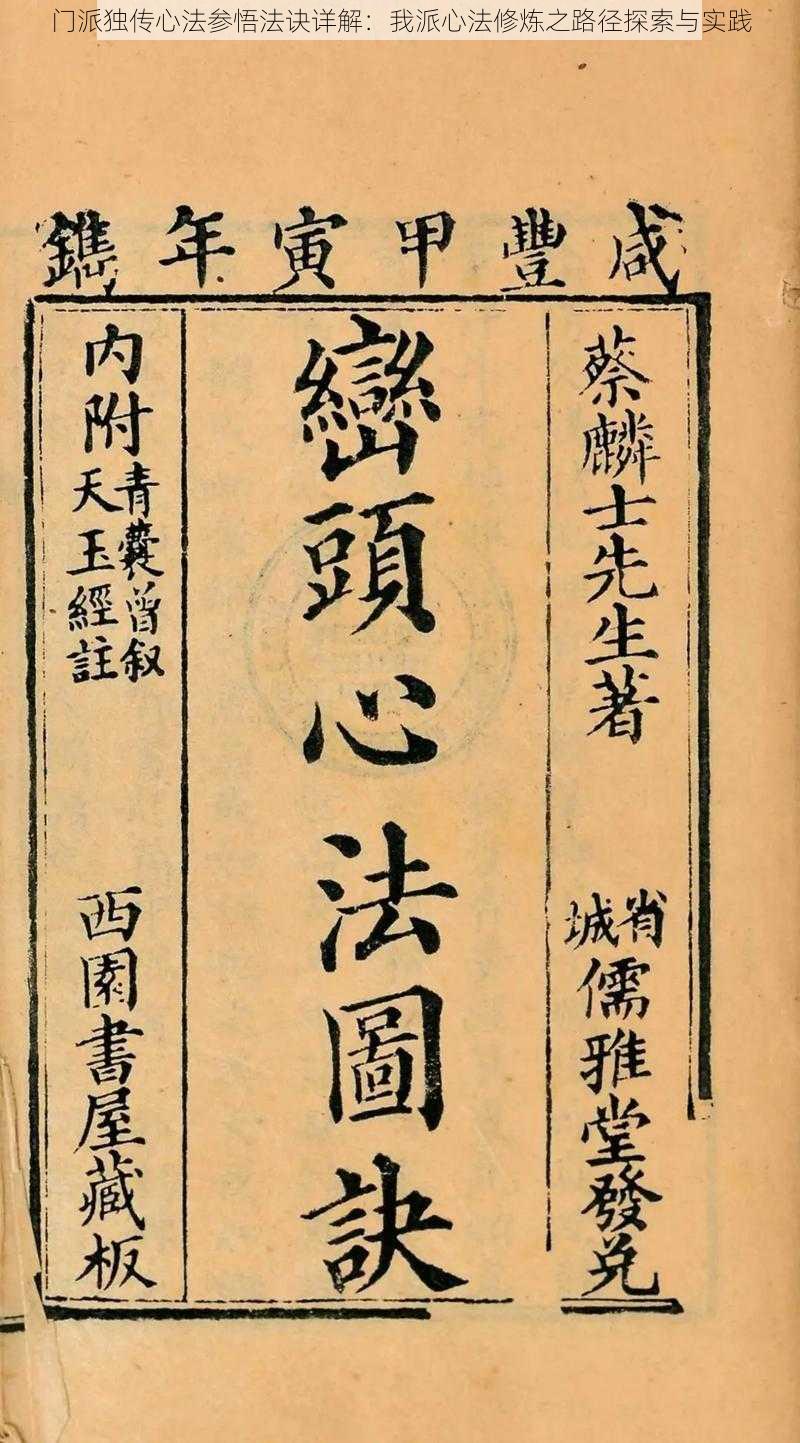 门派独传心法参悟法诀详解：我派心法修炼之路径探索与实践
咸豐甲寅年鐫
蔡麟士先生著
省城儒雅堂發兌
巒頭心法圖訣
内附青囊曾叙天玉經註
西園書屋藏板